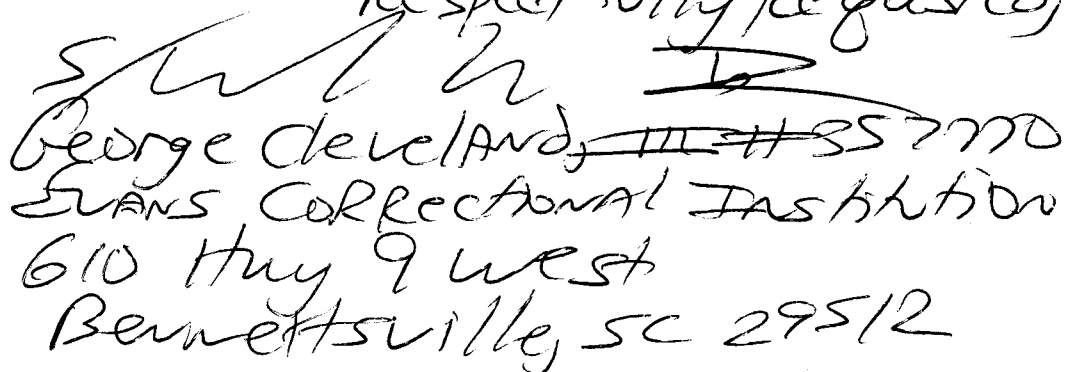 Respectfully Requested,
George Cleveland, III #357770
Evans Correctional Institution
610 Hwy 9 West
Bennettsville, SC 29512